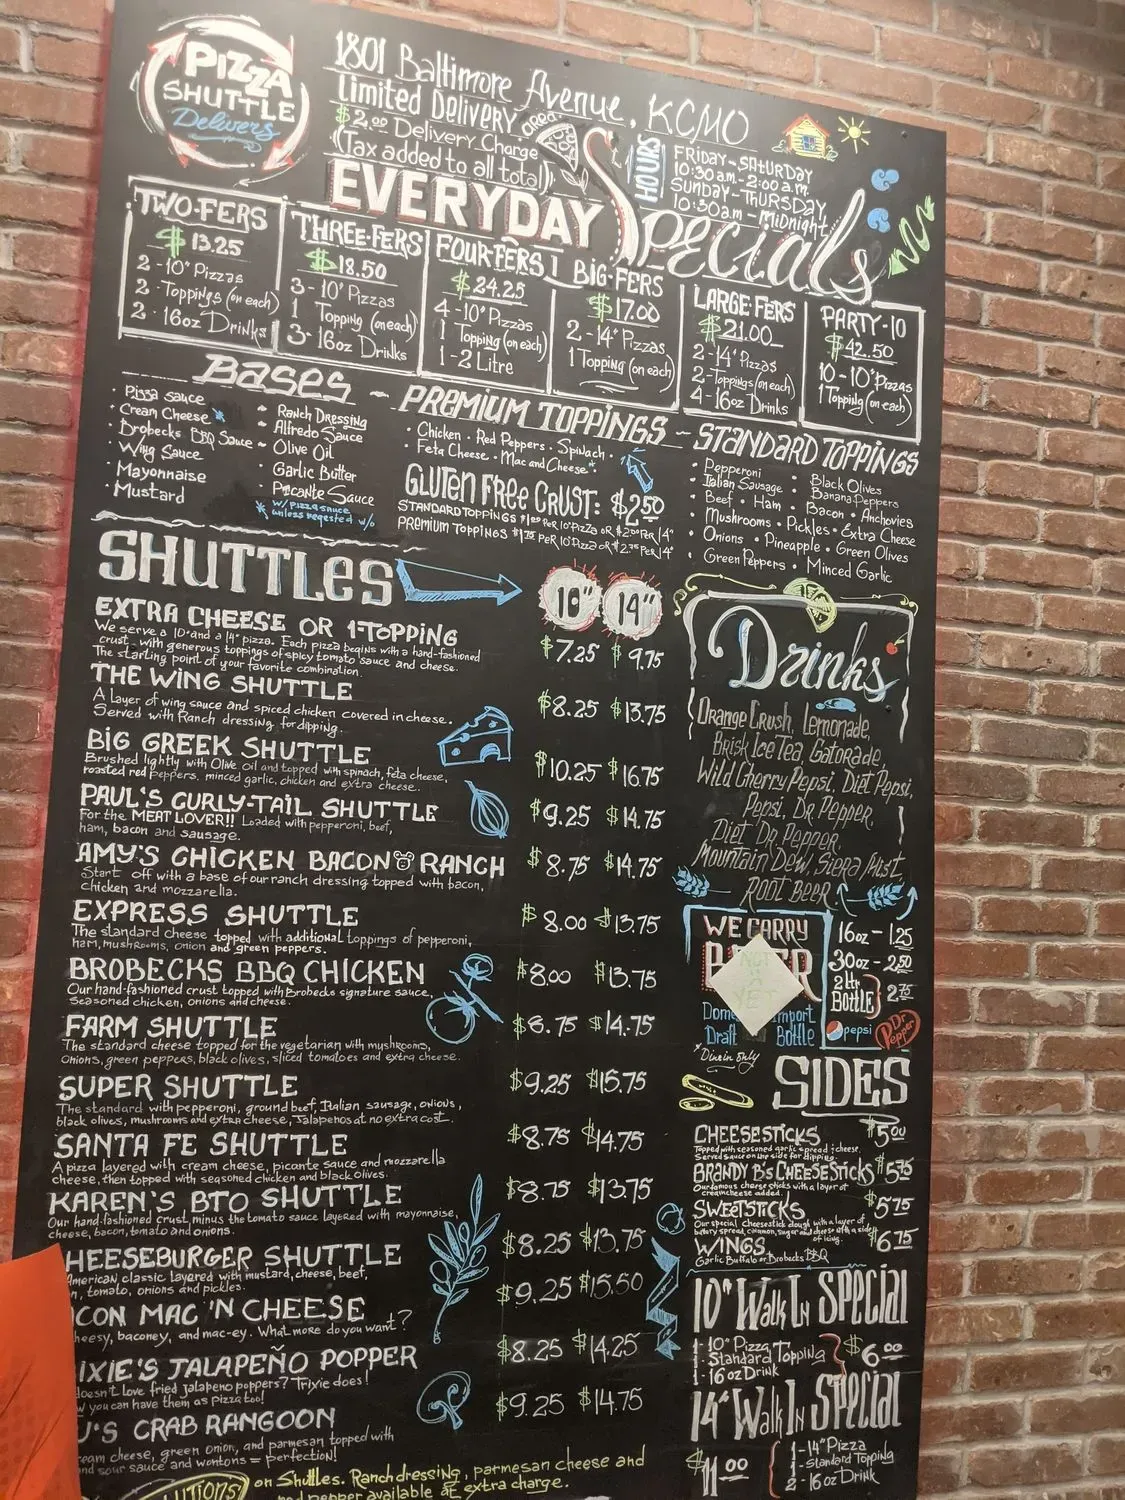 PIZZA
SHUTTLE
Delivers
1801 Baltimore Avenue, KCMO
Limited Delivery AREA
$2.00 Delivery Charge
(Tax added to all total)
HOURS
FRIDAY-SATURDAY
10:30 a.m.-2:00 a.m.
SUNDAY-THURSDAY
10:30am-Midnight
EVERYDAY Specials
TWO-FERS
$13.25
2-10" Pizzas
2-Toppings (on each)
2-16oz Drinks
THREE-FERS
$18.50
3-10" Pizzas
1 Topping (on each)
3-16oz Drinks
FOUR-FERS
$24.25
4-10" Pizzas
1 Topping (on each)
1-2 Litre
BIG-FERS
$17.00
2-14" Pizzas
1 Topping (on each)
LARGE-FERS
$21.00
2-14" Pizzas
2-Toppings (on each)
4-16oz Drinks
PARTY-10
$42.50
10-10" Pizzas
1 Topping (on each)
BASES
· Pizza sauce
· Cream Cheese *
· Brobecks BBQ Sauce
· Wing Sauce
· Mayonnaise
· Mustard
~ Ranch Dressing
~ Alfredo Sauce
~ Olive Oil
· Garlic Butter
· Picante Sauce
* w/pizza sauce
unless reqested w/o
PREMIUM TOPPINGS
· Chicken · Red Peppers · Spinach
· Feta Cheese · Mac and Cheese*
GLUTEN FREE CRUST: $2.50
STANDARD TOPPINGS $1.00 PER 10" Pizza OR $2.00 PER 14"
PREMIUM TOPPINGS $1.75 PER 10" Pizza OR $2.75 PER 14"
STANDARD TOPPINGS
· Pepperoni · Black Olives
· Italian Sausage · Banana Peppers
· Beef · Ham · Bacon · Anchovies
· Mushrooms · Pickles · Extra Cheese
· Onions · Pineapple · Green Olives
· Green Peppers · Minced Garlic
SHUTTLES 10" 14"
EXTRA CHEESE OR 1-TOPPING $7.25 $9.75
We serve a 10" and a 14" pizza. Each pizza begins with a hand-fashioned
crust, with generous toppings of spicy tomato sauce and cheese.
The starting point of your favorite combination.
THE WING SHUTTLE $8.25 $13.75
A layer of wing sauce and spiced chicken covered in cheese.
Served with Ranch dressing for dipping.
BIG GREEK SHUTTLE $10.25 $16.75
Brushed lightly with Olive Oil and topped with spinach, feta cheese,
roasted red peppers, minced garlic, chicken and extra cheese.
PAUL'S CURLY-TAIL SHUTTLE $9.25 $14.75
For the MEAT LOVER!! Loaded with pepperoni, beef,
ham, bacon and sausage.
AMY'S CHICKEN BACON RANCH $8.75 $14.75
Start off with a base of our ranch dressing topped with bacon,
chicken and mozzarella.
EXPRESS SHUTTLE $8.00 $13.75
The standard cheese topped with additional toppings of pepperoni,
ham, mushrooms, onion and green peppers.
BROBECKS BBQ CHICKEN $8.00 $13.75
Our hand-fashioned crust topped with Brobecks signature sauce,
Seasoned chicken, onions and cheese.
FARM SHUTTLE $8.75 $14.75
The standard cheese topped for the vegetarian with mushrooms,
Onions, green peppers, black olives, sliced tomatoes and extra cheese.
SUPER SHUTTLE $9.25 $15.75
The standard with pepperoni, ground beef, Italian sausage, onions,
black olives, mushrooms and extra cheese, Jalapenos at no extra cost.
SANTA FE SHUTTLE $8.75 $14.75
A pizza layered with cream cheese, picante sauce and mozzarella
cheese, then topped with seasoned chicken and black olives.
KAREN'S BTO SHUTTLE $8.75 $13.75
Our hand-fashioned crust, minus the tomato sauce layered with mayonnaise,
cheese, bacon, tomato and onions.
HEESEBURGER SHUTTLE $8.25 $13.75
American classic layered with mustard, cheese, beef,
n, tomato, onions and pickles.
CON MAC 'N CHEESE $9.25 $15.50
heesy, baconey, and mac-ey. What more do you want?
IXIE'S JALAPEÑO POPPER $8.25 $14.25
doesn't love fried jalapeno poppers? Trixie does!
w you can have them as pizza too!
J'S CRAB RANGOON $9.25 $14.75
eam cheese, green onion, and parmesan topped with
nd sour sauce and wontons = perfection!
UTIONS on Shuttles. Ranch dressing, parmesan cheese and
red pepper available at extra charge.
Drinks
Orange Crush, Lemonade,
Brisk Ice Tea, Gatorade,
Wild Cherry Pepsi, Diet Pepsi,
Pepsi, Dr. Pepper,
Diet Dr. Pepper,
Mountain Dew, Siera Mist,
ROOT BEER
WE CARRY
NOT
YET
Draft Bottle
*Dine in only
16oz - 1.25
30oz - 2.50
2 ltr
BOTTLE 2.75
pepsi
Dr Pepper
SIDES
CHEESESTICKS $5.00
Topped with seasoned garlic spread & cheese.
Served sauce on the side for dipping.
BRANDY B'S CHEESESTICKS $5.75
Our famous cheese sticks with a layer of
creamcheese added.
SWEETSTICKS $5.75
Our special cheesestick dough with a layer of
buttery spread, cinnamon, sugar and cheese with a side
of icing.
WINGS $6.75
Garlic Buffalo or Brobecks BBQ
10" Walk In Special
1-10" Pizza
1-Standard Topping
1-16oz Drink
$6.00
14" Walk In Special
$11.00
1-14" Pizza
1-Standard Topping
2-16oz Drink